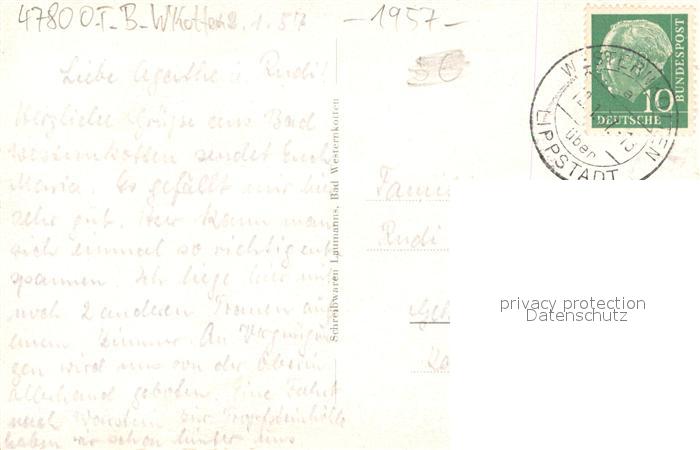 47800-T-B-WKotten 2.1.57
-1957-
Liebe Agathe u. Rudi!
Herzliche Grüße aus Bad
Westernkotten sendet Euch
Maria. Es gefällt mir hier
sehr gut. Hier kann man
sich einmal so richtig ent
spannen. Ich liege hier mit
noch 2 anderen Frauen auf
einem Zimmer. An Vergnügun
gen wird uns von der Oberin
allerhand geboten. Eine Fahrt
nach Warstein zur Tropfsteinhöhle
haben wir schon hinter uns
Schreibwaren Laumanns, Bad Westernkotten
10
DEUTSCHE
BUNDESPOST
über
LIPPSTADT
Famili
Rudi
privacy protection
Datenschutz